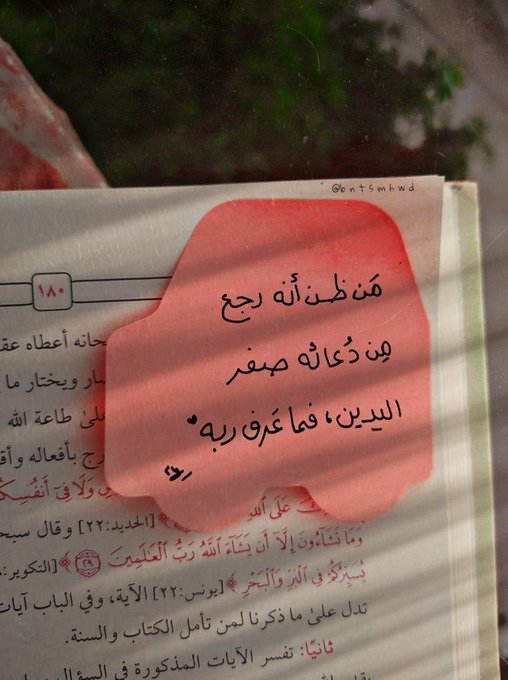 @bntsmhwd
مَن ظن أنه رجع
مِن دُعائه صفر
اليدين، فما عَرف ربه
١٨٠
حانه أعطاه عقـ
ـار ويختار ما
علىٰ طاعة الله
ـرج بأفعاله وأقـ
وَلَا فِي أَنفُسِكُـ
عَلَى اللَّهِ ﴾ [الحديد:٢٢] وقال سبحـ
وَمَا تَشَاءُونَ إِلَّا أَن يَشَاءَ اللَّهُ رَبُّ الْعَالَمِينَ ٢٩ ﴾ [التكوير:
يُسَيِّرُكُمْ فِي الْبَرِّ وَالْبَحْرِ ﴾ [يونس:٢٢] الآية، وفي الباب آيات
تدل علىٰ ما ذكرنا لمن تأمل الكتاب والسنة.
ثانيًا: تفسر الآيات المذكورة في السؤال